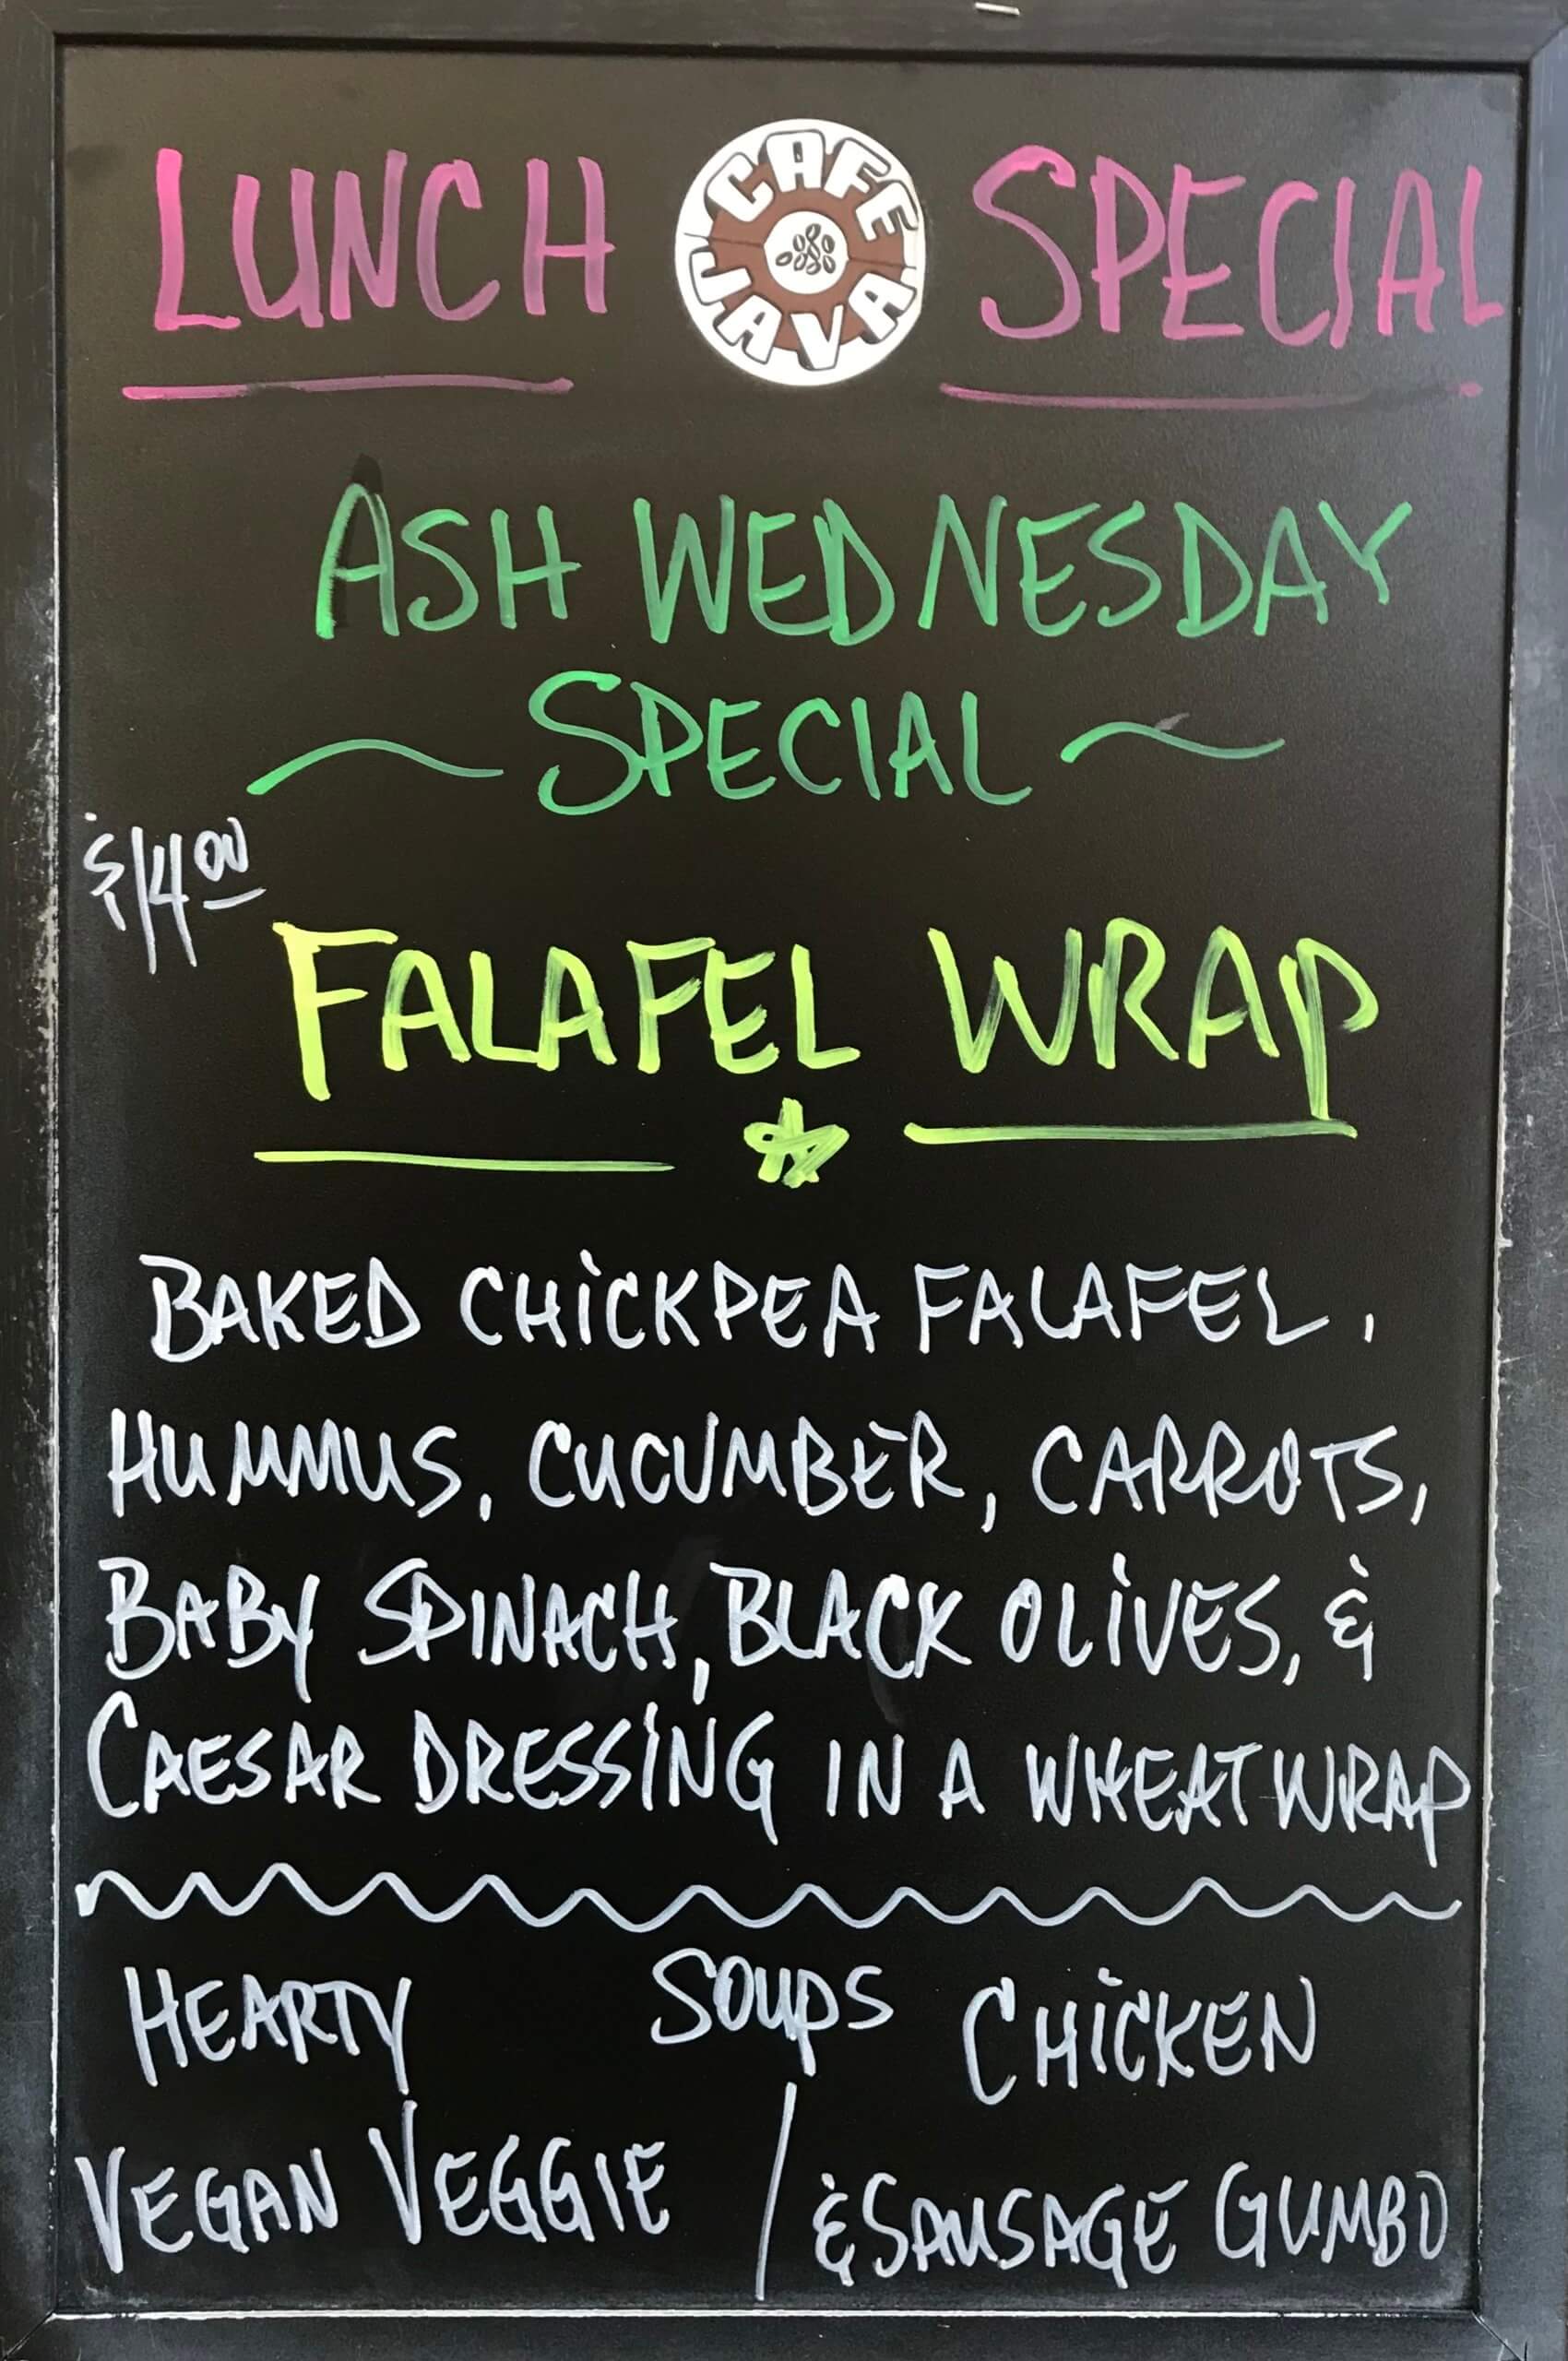 LUNCH CAFE JAVA SPECIAL
ASH WEDNESDAY
~ SPECIAL ~
$14.00
FALAFEL WRAP
BAKED CHICKPEA FALAFEL,
HUMMUS, CUCUMBER, CARROTS,
BABY SPINACH, BLACK OLIVES, &
CAESAR DRESSING IN A WHEAT WRAP
SOUPS
HEARTY
VEGAN VEGGIE
/
CHICKEN
& SAUSAGE GUMBO